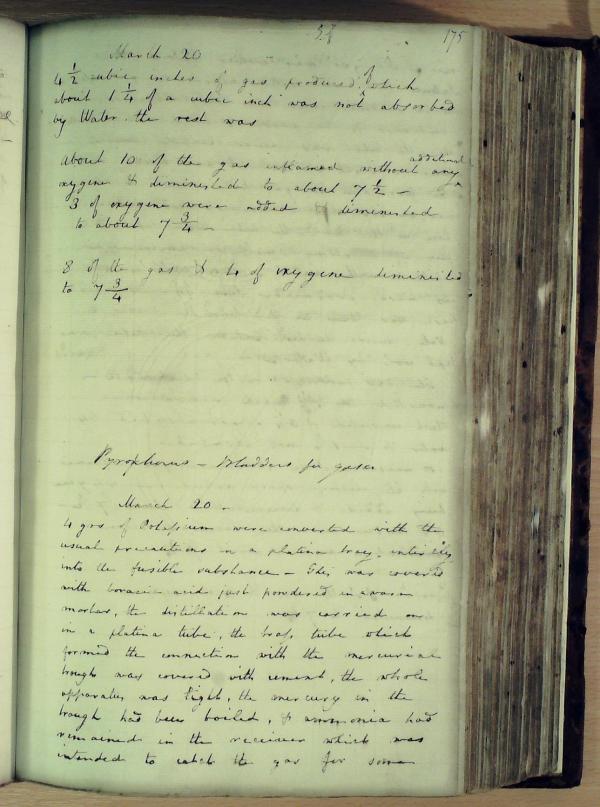 175
March 20
4 1/2 cubic inches of gas produced of which
about 1 1/4 of a cubic inch was not absorbed
by Water. the rest was
About 10 of the gas inflamed without any additional
oxygene & diminished to about 7 1/2 –
3 of oxygene were added & diminished
to about 7 3/4 –
8 of the gas & 4 of oxygene diminished
to 7 3/4
Pyrophorus – Bladders for gases
March 20 –
4 grs of Potassium were converted with the
usual precautions in a platina tray, entirely
into the fusible substance – This was covered
with boracic acid just powdered in a warm
mortar, the distillation was carried on
in a platina tube, the brass tube which
formed the connection with the mercurial
trough was covered with cement, the whole
apparatus was tight, the mercury in the
trough had been boiled, & ammonia had
remained in the receiver which was
intended to catch the gas for some